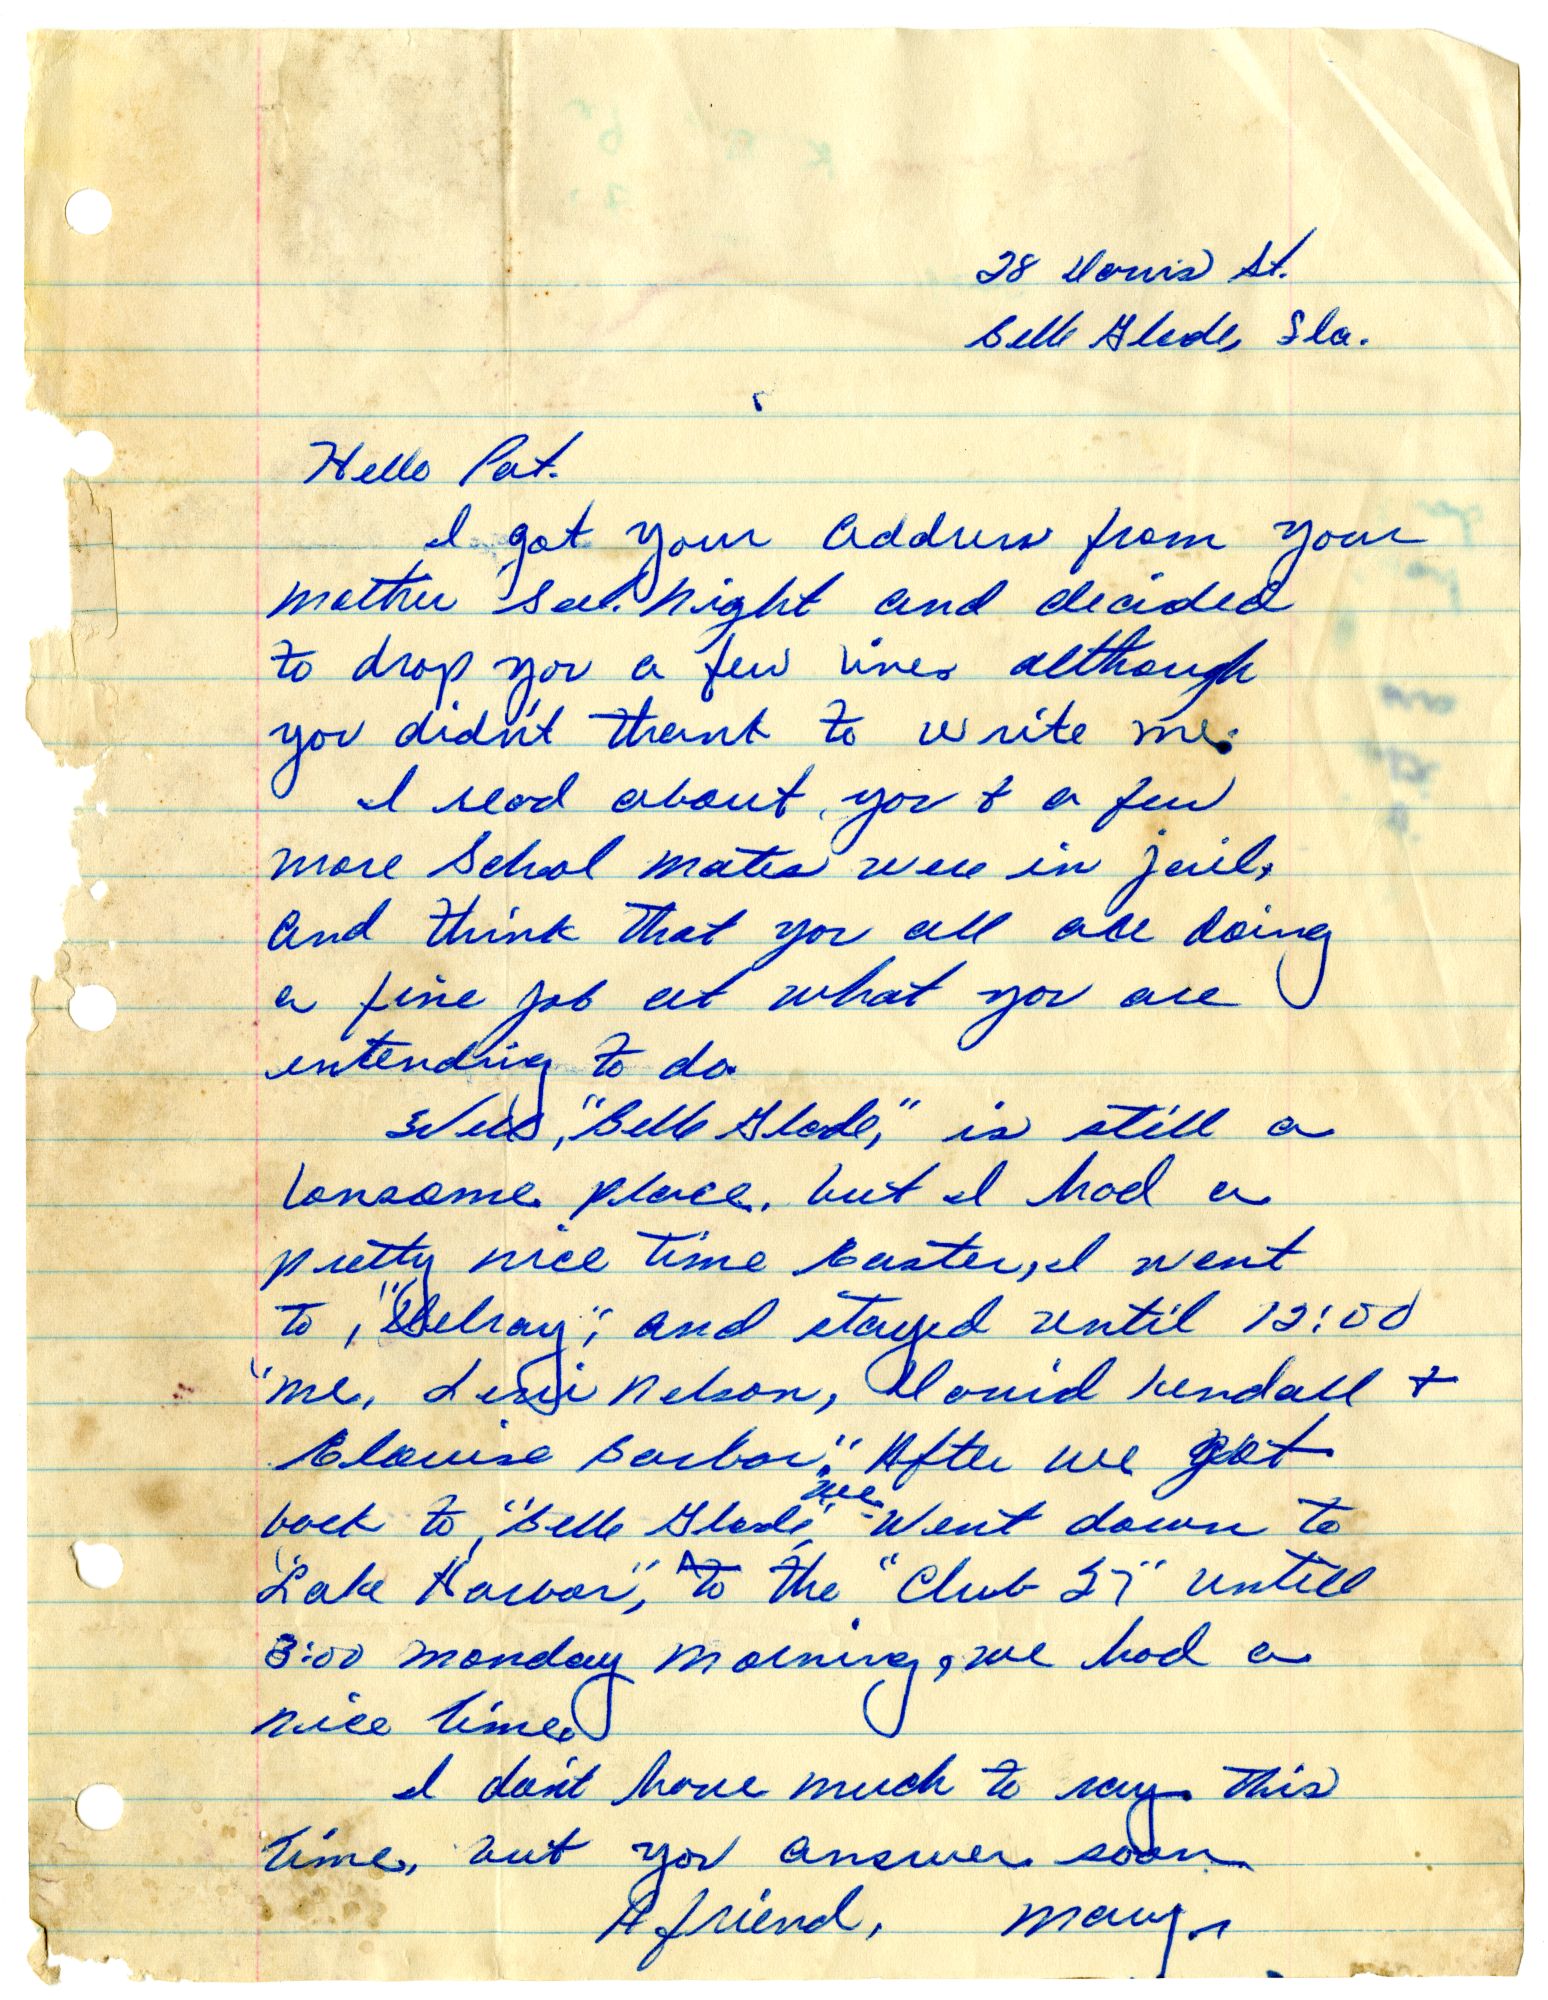 28 Davis St.
Belle Glade, Fla.
Hello Pat.
I got your address from your
mother Sat. night and decided
to drop you a few lines although
you didn't thank to write me.
I read about you & a few
more School mates were in jail,
and think that you all are doing
a fine job at what you are
entending to do.
Well, "Belle Glade," is still a
lonsome place, but I had a
pretty nice time Easter, I went
to, "Delray", and stayed until 12:00
"me, Nelson, David Kendall &
Elouise Barbor." After we got
back to, "Belle Glade," we went down to
"Lake Harbor", to the "Club 57" untill
3:00 monday morning, we had a
nice time.
I don't have much to say this
time, but you answer soon.
A friend, Mary